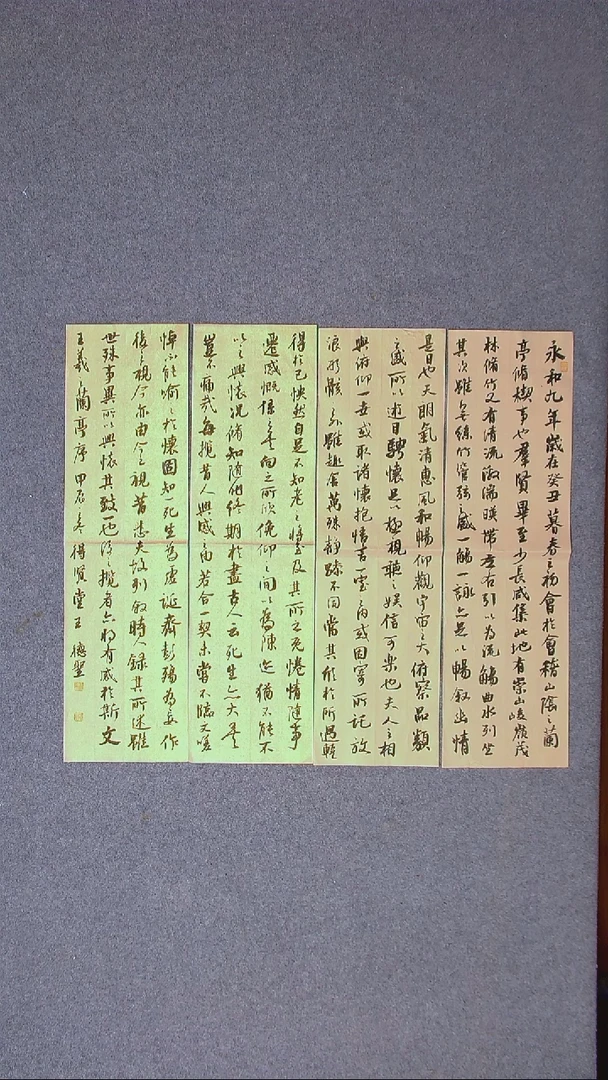 永和九年歲在癸丑暮春之初會於會稽山陰之蘭
亭脩禊事也羣賢畢至少長咸集此地有崇山峻嶺茂
林脩竹又有清流激湍暎帶左右引以為流觴曲水列坐
其次雖無絲竹管弦之盛一觴一詠亦足以暢敘幽情
是日也天朗氣清惠風和暢仰觀宇宙之大俯察品類
之盛所以遊目騁懷足以極視聽之娛信可樂也夫人之相
與俯仰一世或取諸懷抱悟言室之內或因寄所託放
浪形骸之外雖趣舍萬殊靜躁不同當其欣於所遇輕
得於己怏然自足不知老之將至及其所之既惓情隨事
遷感慨係之矣向之所欣俛仰之間以為陳迹猶不能不
以之興懷況脩短隨化終期於盡古人云死生亦大矣
豈不痛哉每攬昔人興感之由若合一契未嘗不臨文嗟
悼不能喻之於懷固知一死生為虛誕齊彭殤為妄作
後之視今亦由今之視昔悲夫故列敘時人錄其所述雖
世殊事異所以興懷其致一也後之攬者亦將有感於斯文
王羲之蘭亭序 甲辰之冬 得賢堂王德